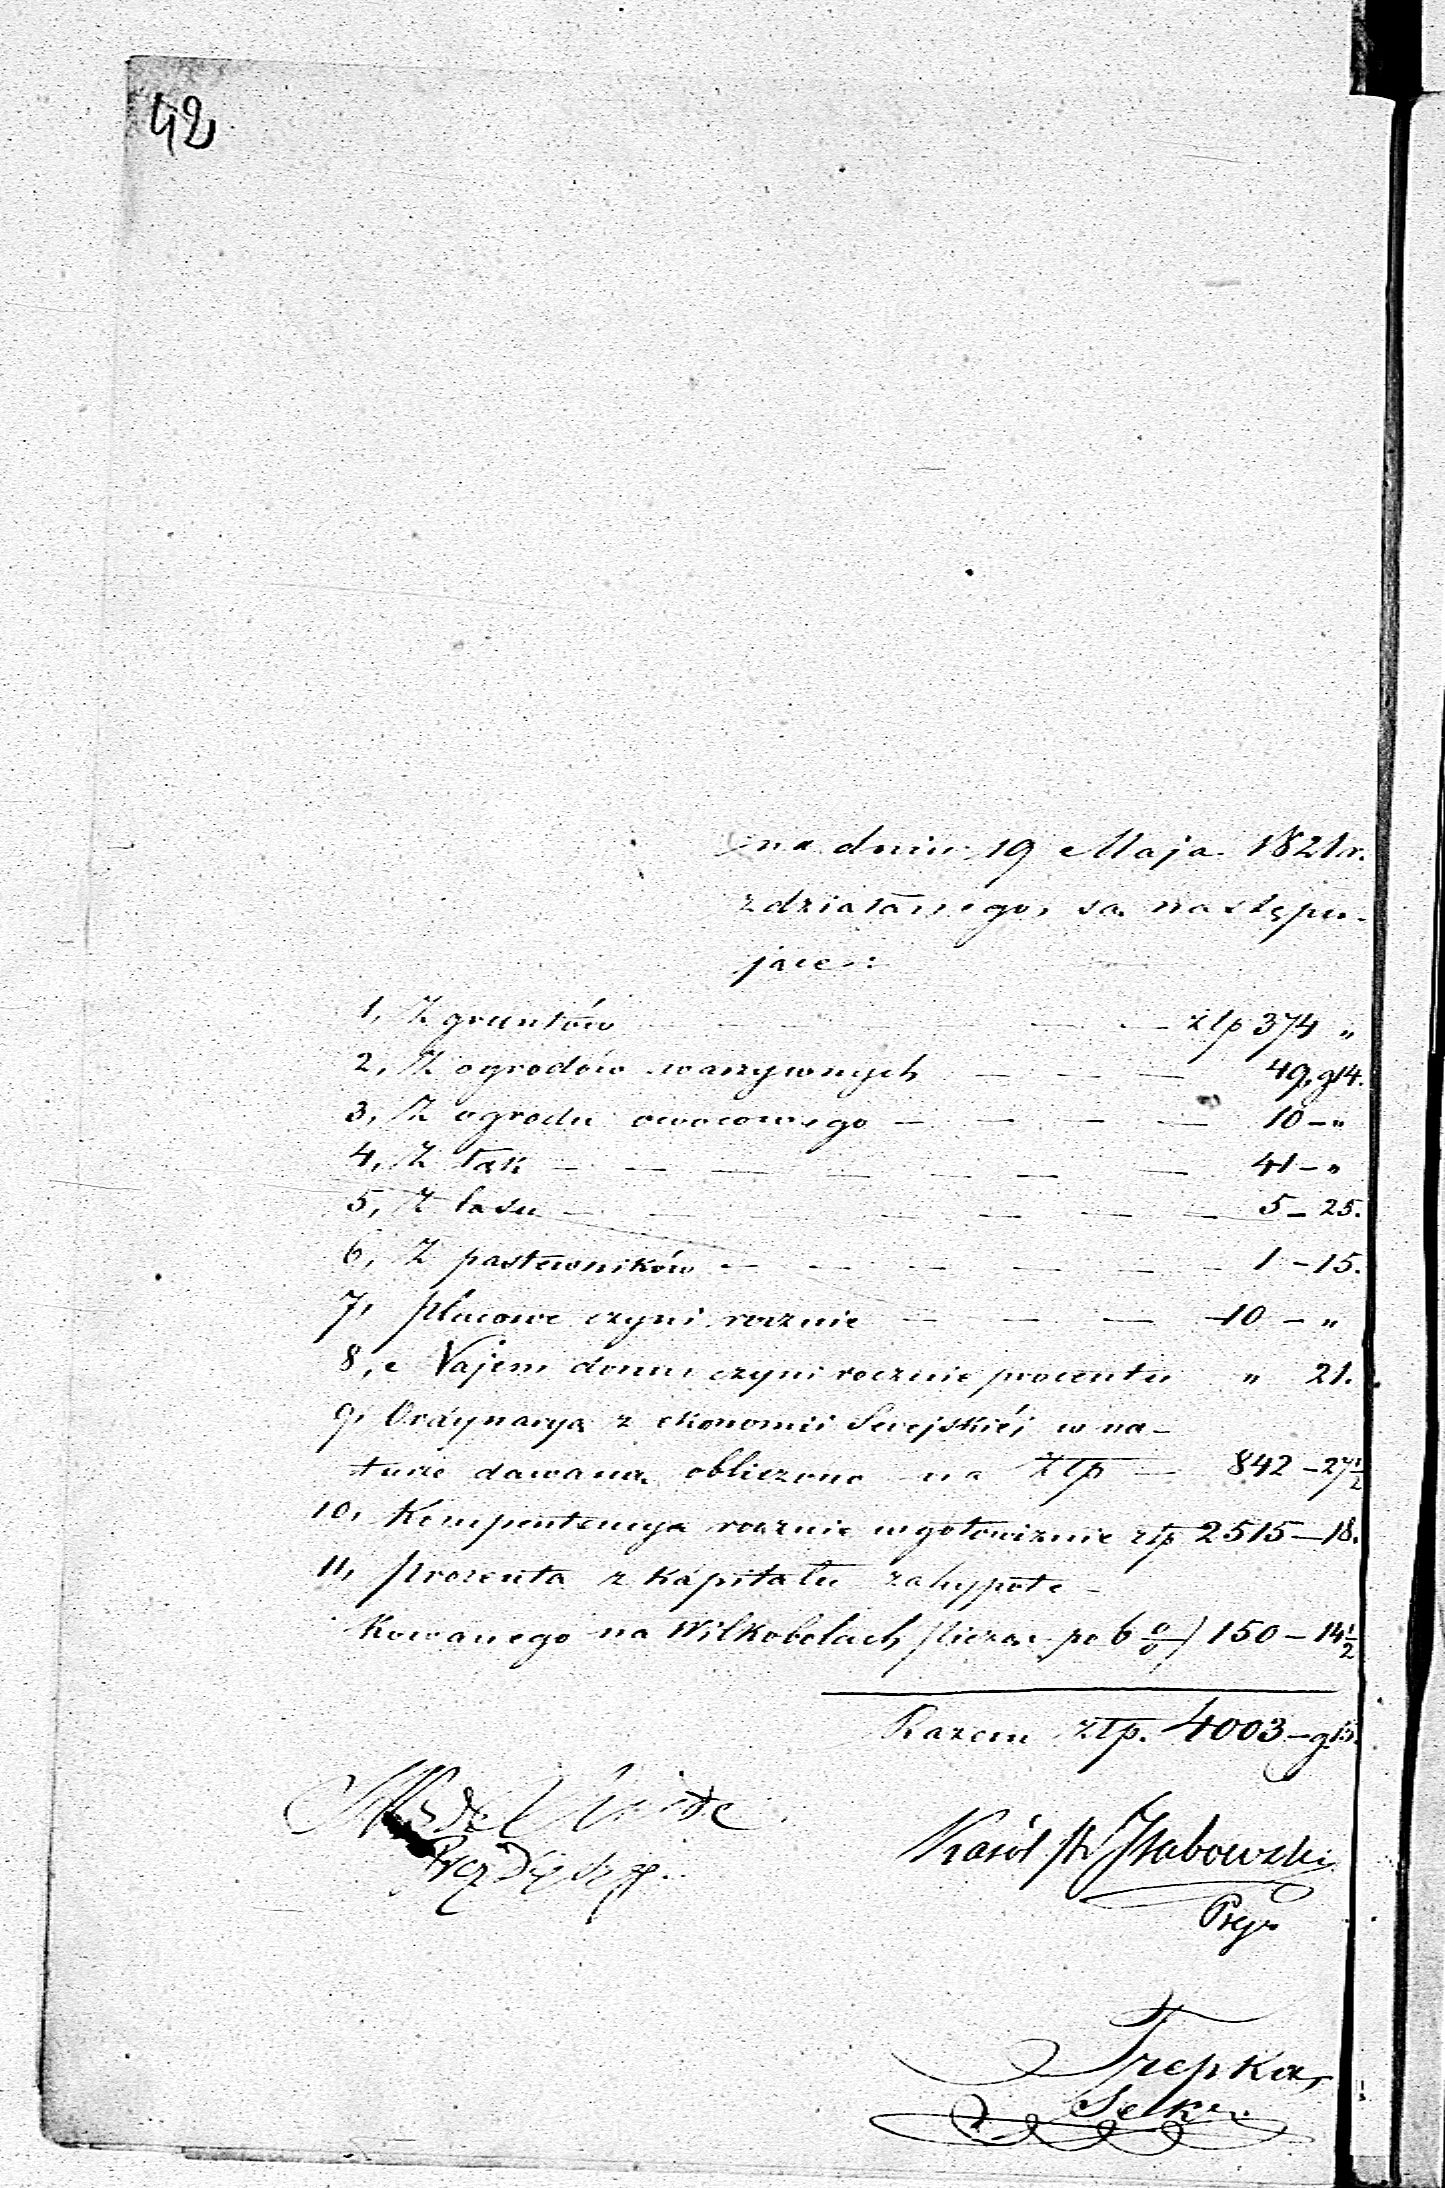 42
na dniu 19 Maja 1821 r.
zdziałanego, są następu-
jące:
1, Z gruntów — — — złp 374 „
2, Z ogrodów warzywnych — — — 49, g 14.
3, Z ogrodu owocowego — — — — 10 — „
4, Z łąk — — — — — — — 41 — „
5, Z lasu — — — — — — — 5 — 25.
6, Z pastewników — — — — — — 1 — 15.
7, Placowe czyni rocznie — — — — 10 — „
8, Najem domu czyni rocznie procentu „ 21.
9, Ordynarya z ekonomii Serejskiéj w na-
turze dawana obliczono na złp — 842 — 27½
10, Kompentencya rocznie w gotowiznie złp 2515 — 18.
11, Procenta z kapitału zahypote-
kowanego na Wilkobolach /licząc po 6 0/0/ 150 — 14½
Razem złp. 4003 — g 15.
Karól
Trepka,
Sekr.